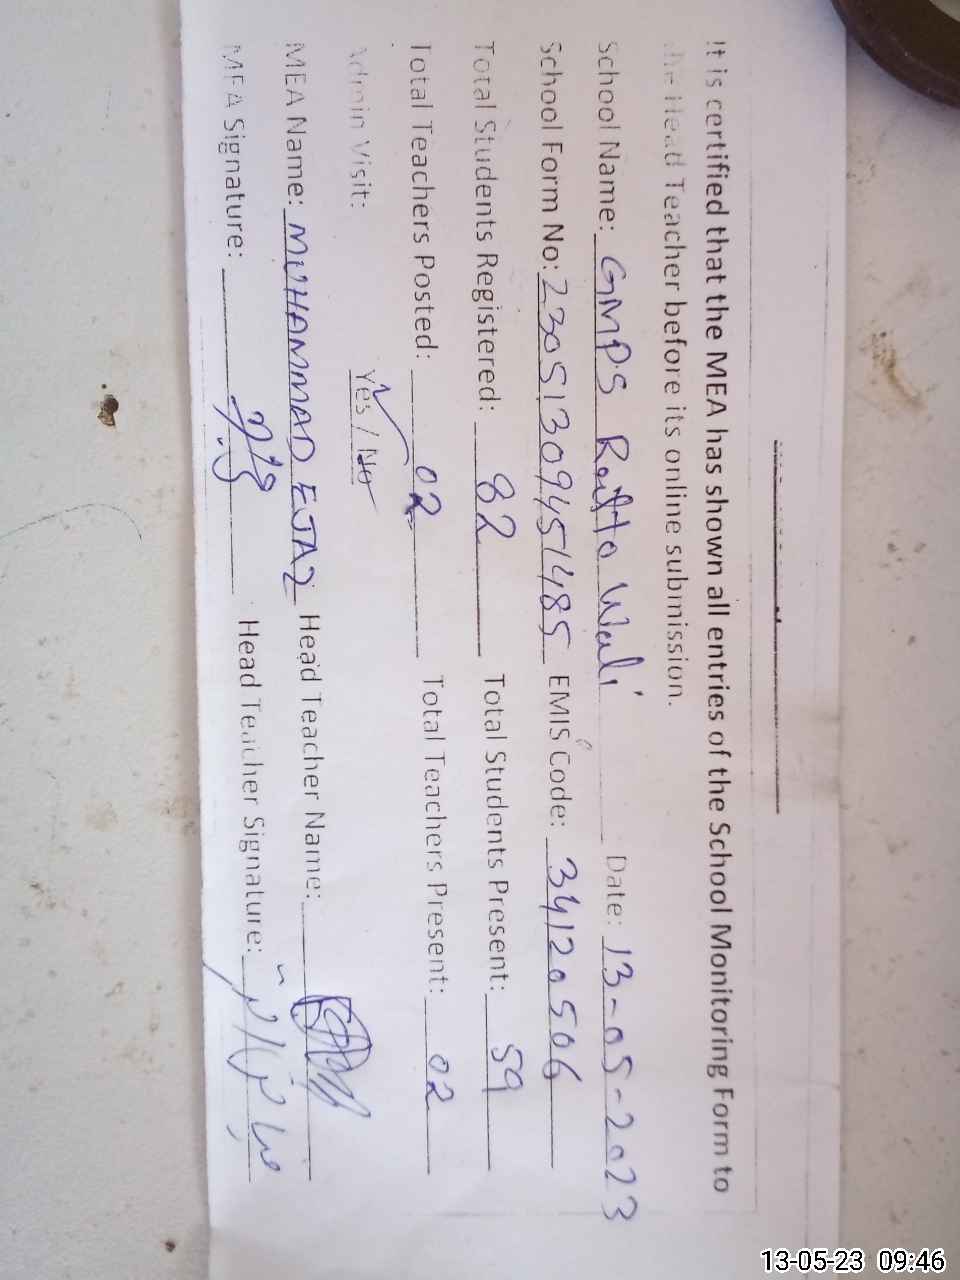 It is certified that the MEA has shown all entries of the School Monitoring Form to
the Head Teacher before its online submission.
School Name: GMPS Raitto Wali Date: 13-05-2023
School Form No: 23051309451485 EMIS Code: 34120506
Total Students Registered: 82 Total Students Present: 59
Total Teachers Posted: 02 Total Teachers Present: 02
Admin Visit: Yes / No
MEA Name: MUHAMMAD EJAZ Head Teacher Name:
MEA Signature: Head Teacher Signature:
13-05-23 09:46